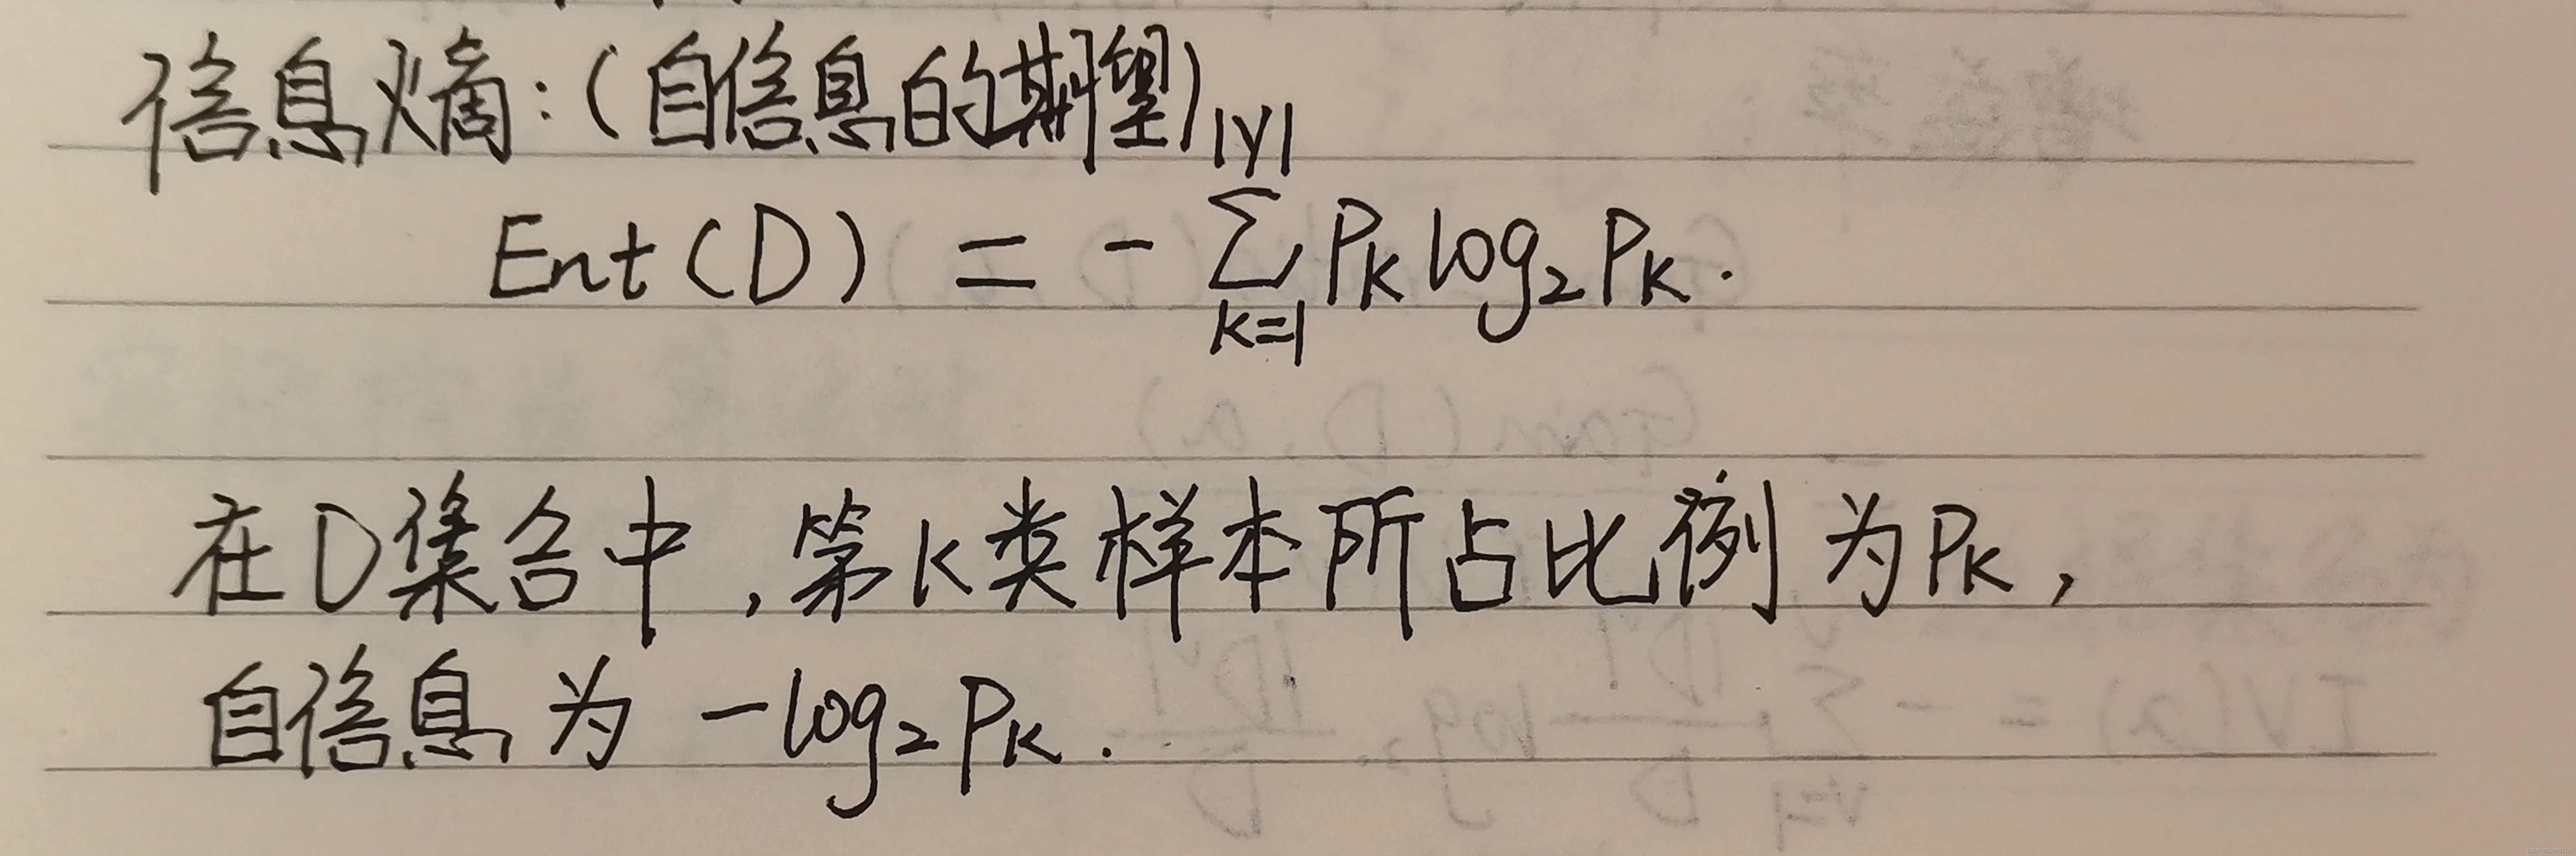 信息熵:(自信息的期望)
|y|
Ent(D) = - ∑ Pk log₂ Pk.
k=1
在D集合中,第k类样本所占比例为Pk,
自信息为 -log₂Pk.